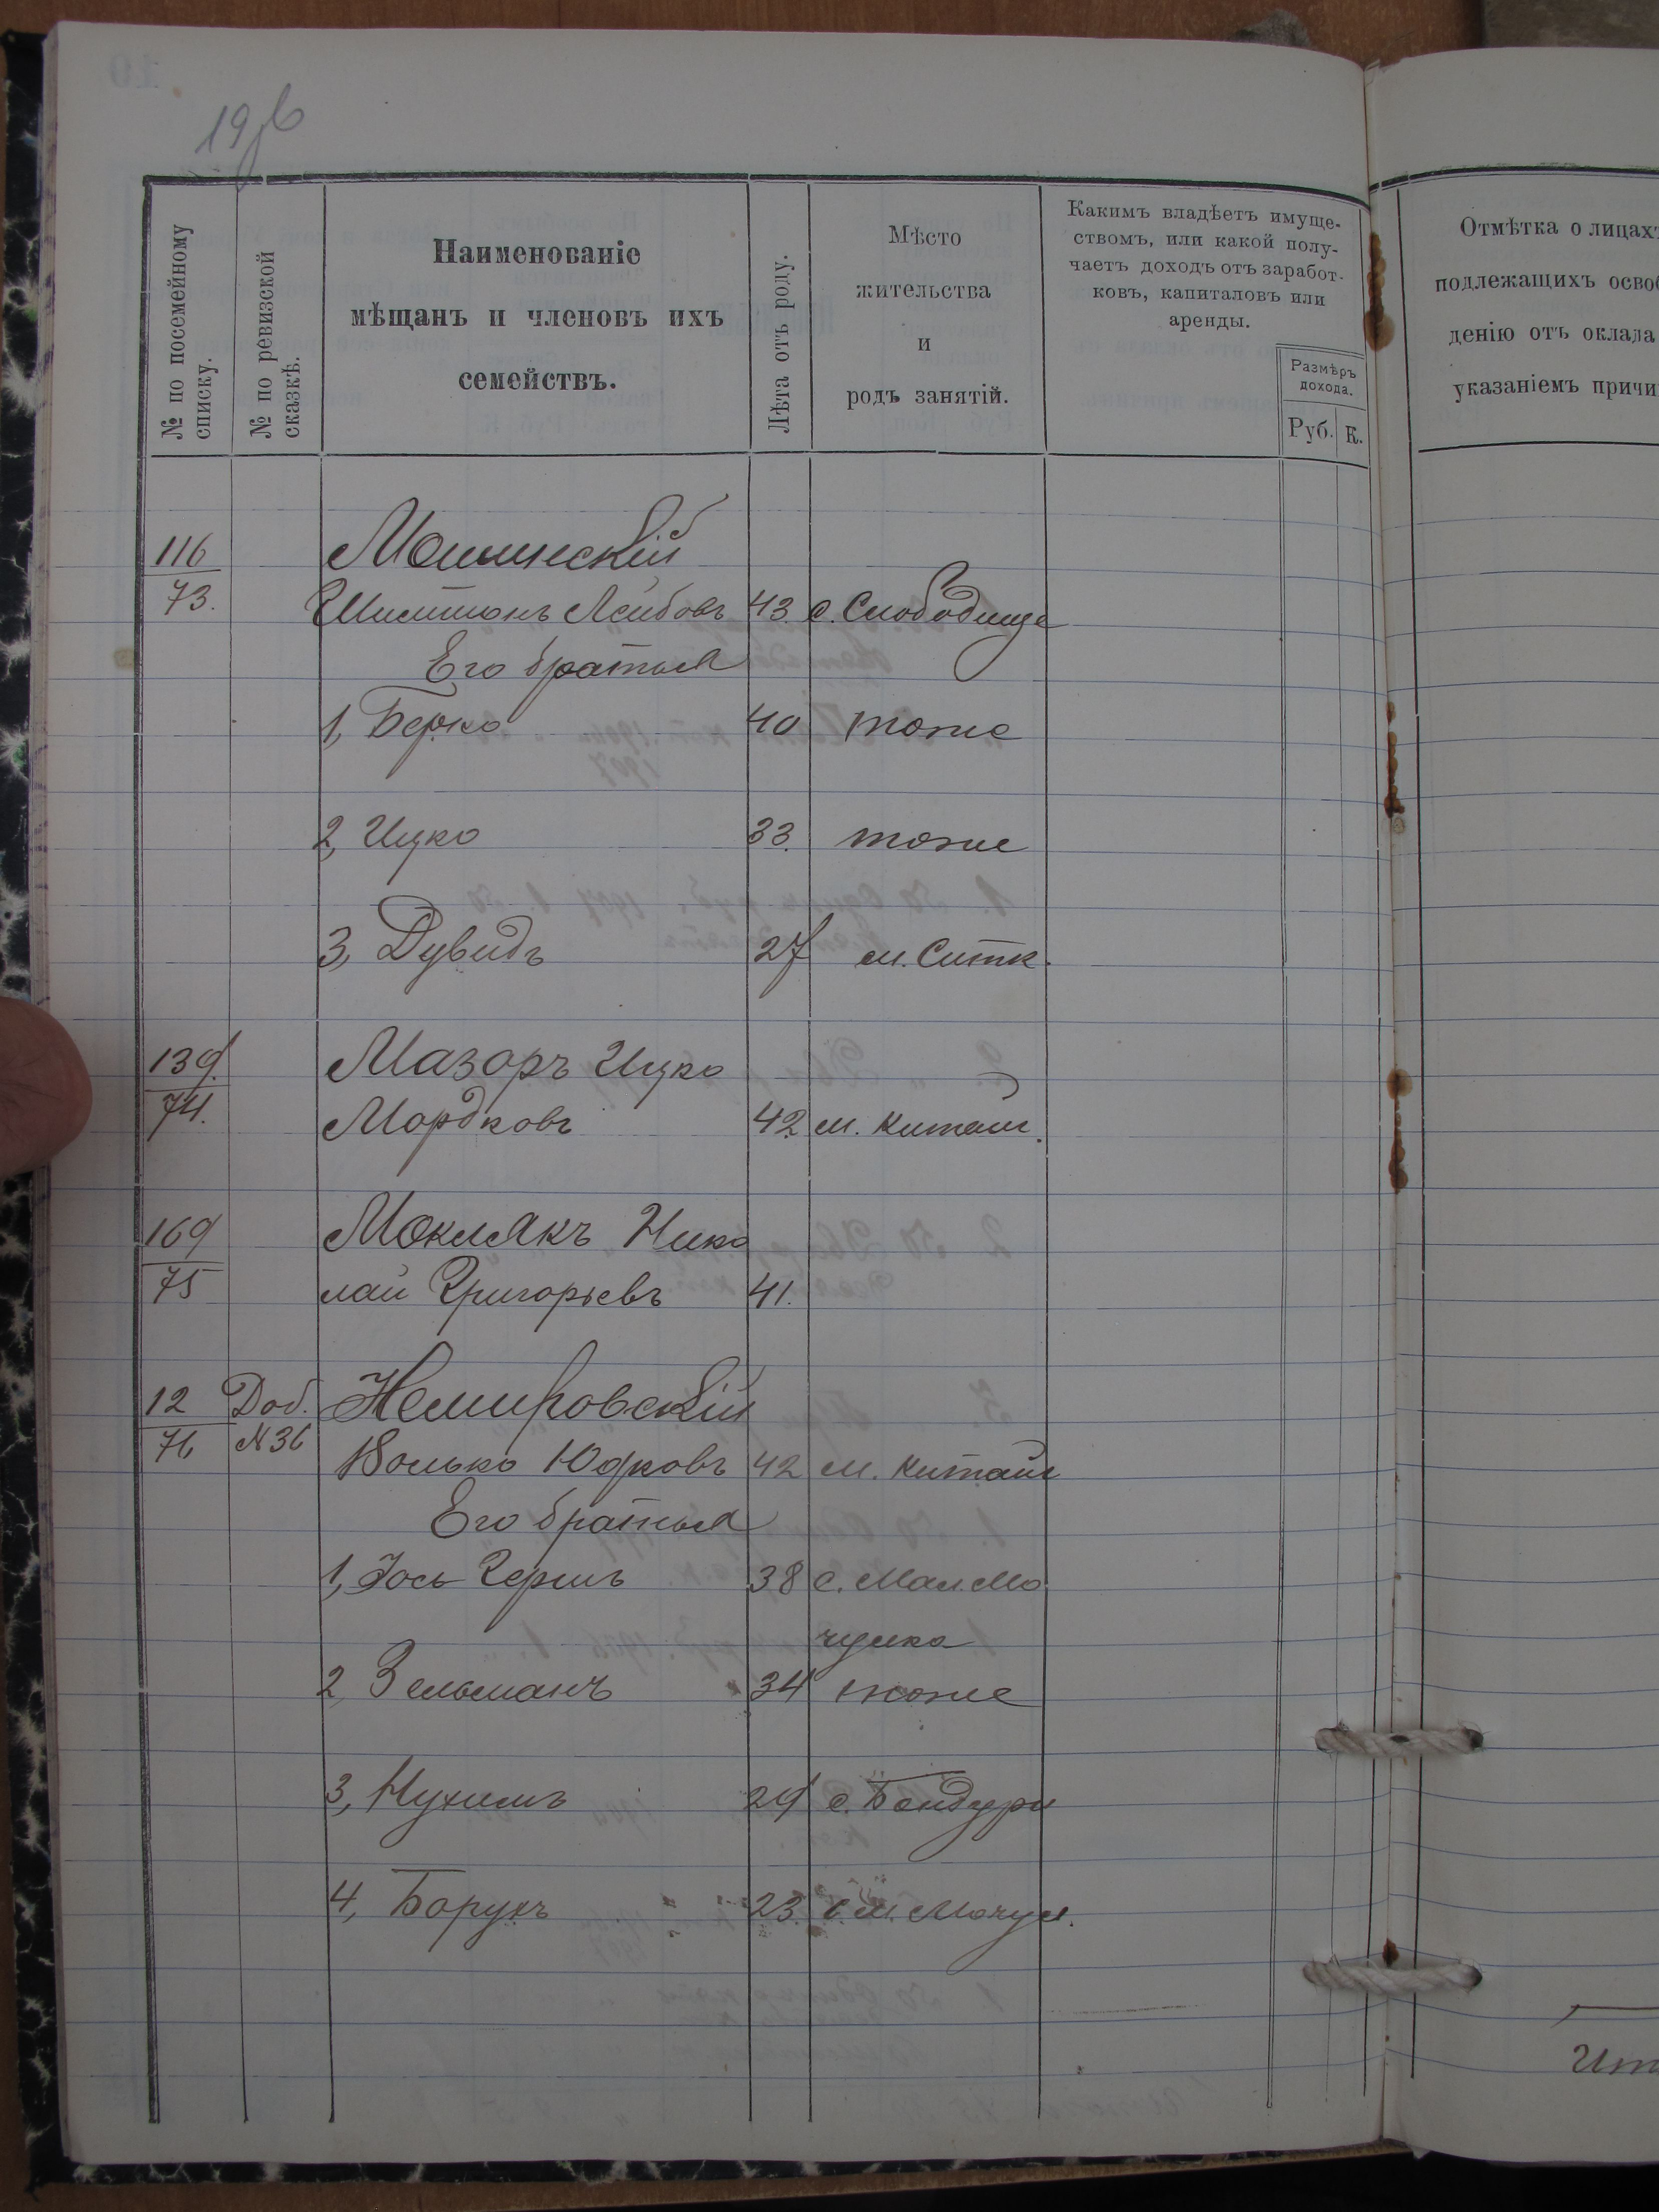 19об
№ по посемейному
списку.
№ по ревизской
сказкѣ.
Наименованіе
мѣщанъ и членовъ ихъ
семействъ.
Лѣта отъ роду.
Мѣсто
жительства
и
родъ занятій.
Какимъ владѣетъ имуще-
ствомъ, или какой полу-
чаетъ доходъ отъ заработ-
ковъ, капиталовъ или
аренды.
Размѣръ
дохода.
Руб. К.
Отмѣтка о лицахъ
подлежащихъ освоб
денію отъ оклада
указаніемъ причи
116
73. Лейбовъ 43 с. Слободище
Его братья
1, Берко 40 тоже
2, Ицко 33. тоже
3, Дувидъ 27 м. Ситк.
139. Мазоръ Ицко
74. Мордковъ 42 м. Китайг.
169 Моклякъ Нико
75 лай Григорьевъ 41.
12 Доб. Немировскій
76 №36 Волько Юдковъ 42 м. Китайг
Его братья
1, Іось Гершъ 38 с. Мал. Мо
чулка
2, Зельманъ 34 тоже
3, Нухимъ 29 с. Бондури
4, Борухъ 23. с. М. Мочул.
Ит